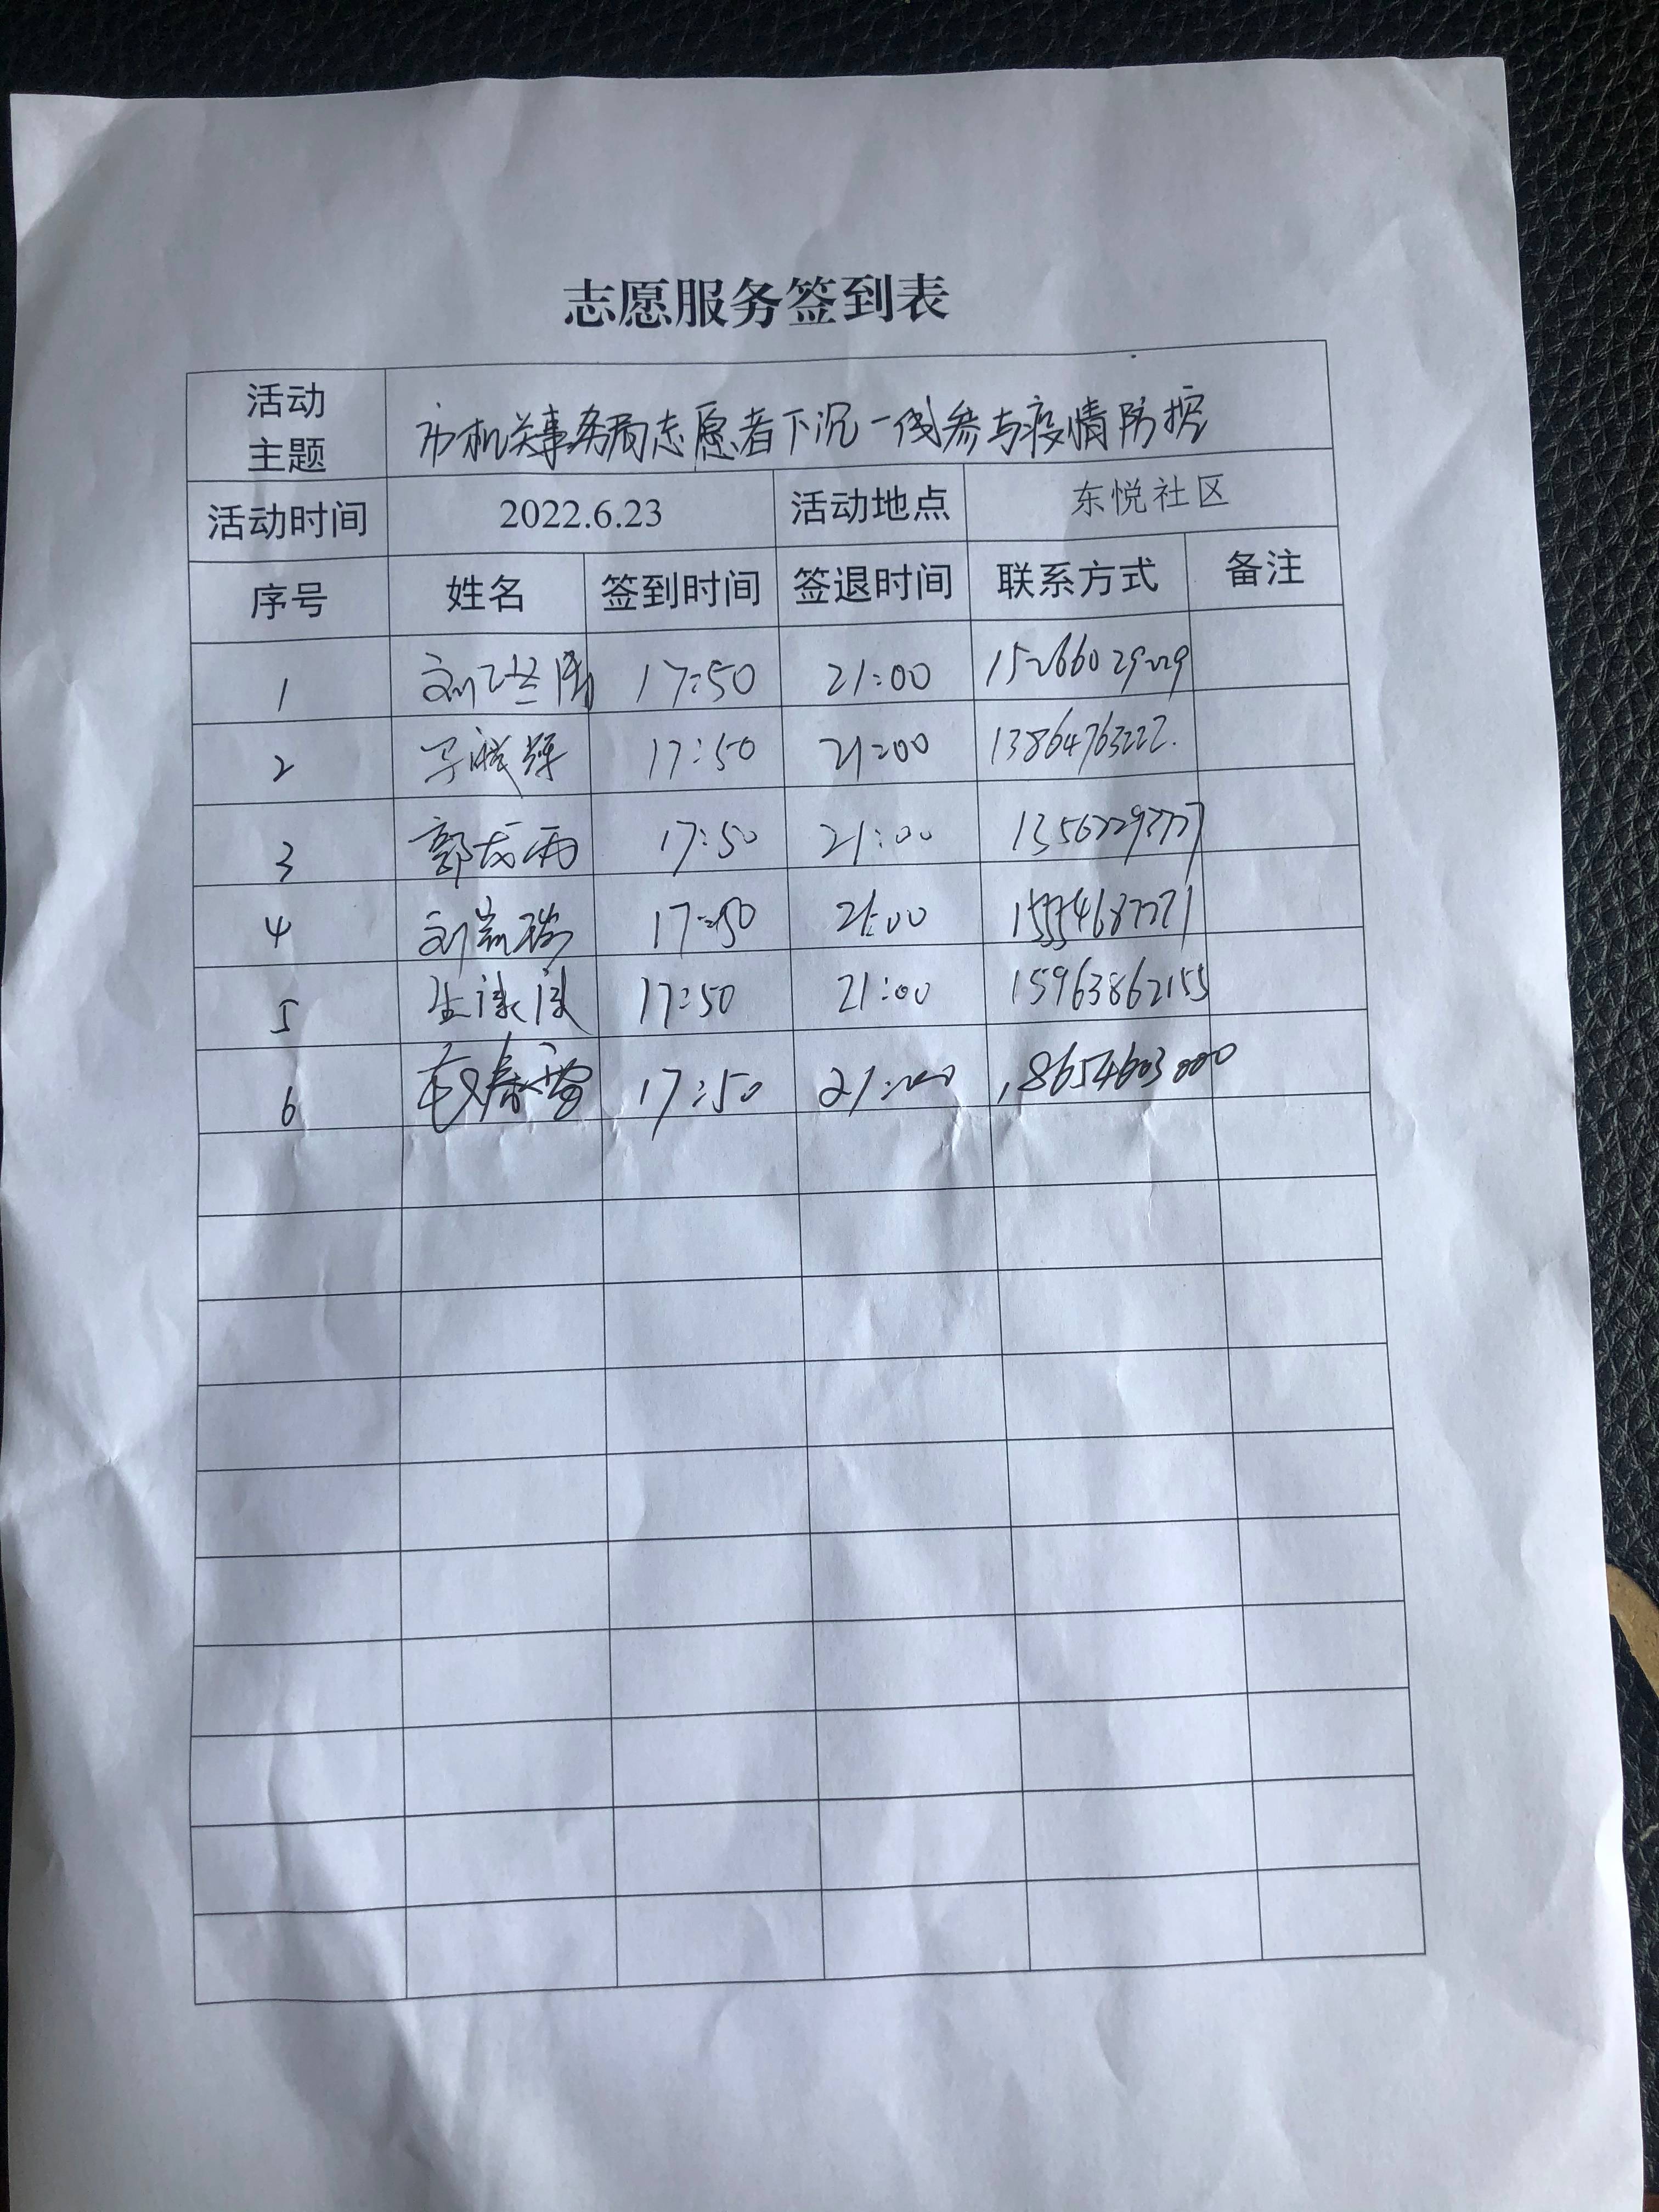 志愿服务签到表
活动主题 市机关事务局志愿者下沉一线参与疫情防控
活动时间 2022.6.23 活动地点 东悦社区
序号 姓名 签到时间 签退时间 联系方式 备注
1 刘 17:50 21:00 15266029229
2 17:50 21:00 13864763222.
3 郭成雨 17:50 21:00
4 刘 17:50 21:00
5 17:50 21:00 15963862155
6 17:50 21:00 18654603000